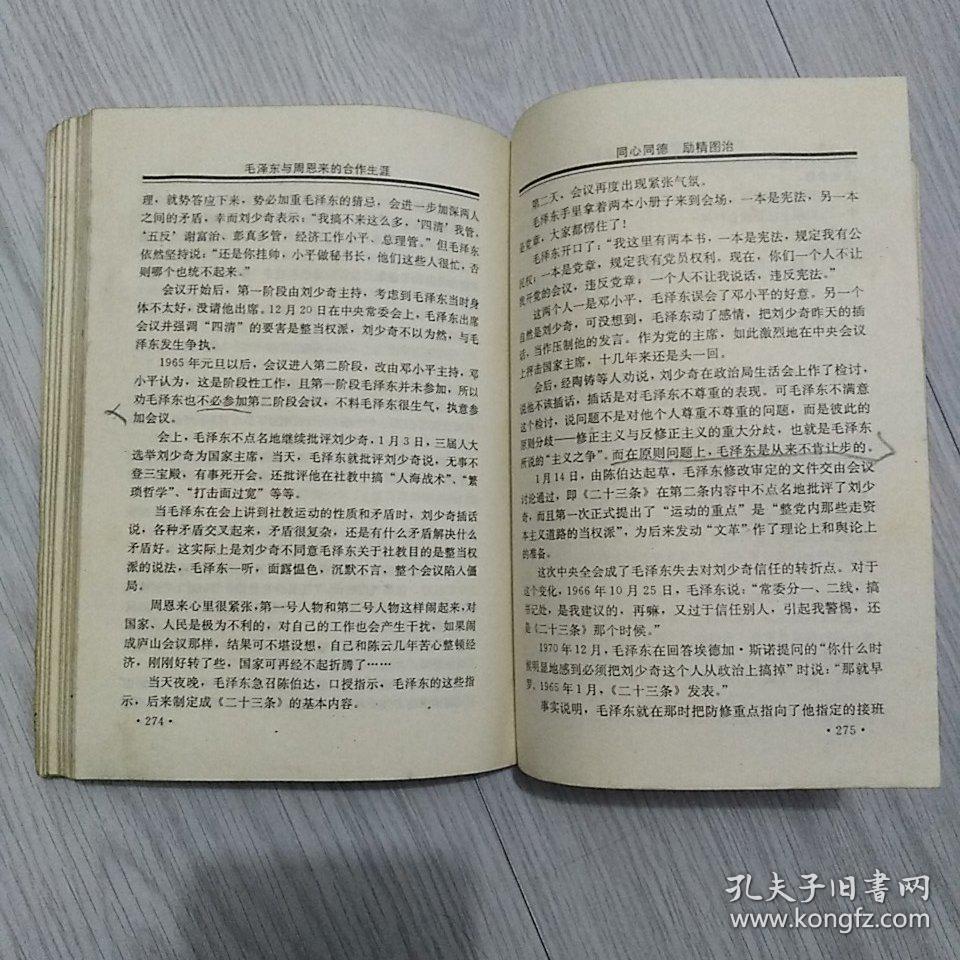 毛泽东与周恩来的合作生涯
理，就势答应下来，势必加重毛泽东的猜忌，会进一步加深两人
之间的矛盾，幸而刘少奇表示：“我搞不来这么多，‘四清’我管，
‘五反’谢富治、彭真多管，经济工作小平、总理管。”但毛泽东
依然坚持说：“还是你挂帅，小平做秘书长，他们这些人很忙，否
则哪个也统不起来。”
会议开始后，第一阶段由刘少奇主持，考虑到毛泽东当时身
体不太好，没请他出席。12月20日在中央常委会上，毛泽东出席
会议并强调“四清”的要害是整当权派，刘少奇不以为然，与毛
泽东发生争执。
1965年元旦以后，会议进人第二阶段，改由邓小平主持，邓
小平认为，这是阶段性工作，且第一阶段毛泽东并未参加，所以
劝毛泽东也不必参加第二阶段会议，不料毛泽东很生气，执意参
加会议。
会上，毛泽东不点名地继续批评刘少奇，1月3日，三届人大
选举刘少奇为国家主席，当天，毛泽东就批评刘少奇说，无事不
登三宝殿，有事死开会。还批评他在社教中搞“人海战术”、“繁
琐哲学”、“打击面过宽”等等。
当毛泽东在会上讲到社教运动的性质和矛盾时，刘少奇插话
说，各种矛盾交叉起来，矛盾很复杂，还是有什么矛盾解决什么
矛盾好。这实际上是刘少奇不同意毛泽东关于社教目的是整当权
派的说法，毛泽东一听，面露愠色，沉默不言，整个会议陷人僵
局。
周恩来心里很紧张，第一号人物和第二号人物这样闹起来，对
国家、人民是极为不利的，对自己的工作也会产生干扰，如果闹
成庐山会议那样，结果可不堪设想，自己和陈云几年苦心整顿经
济，刚刚好转了些，国家可再经不起折腾了……
当天夜晚，毛泽东急召陈伯达，口授指示，毛泽东的这些指
示，后来制定成《二十三条》的基本内容。
·274·
同心同德 励精图治
第二天，会议再度出现紧张气氛。
毛泽东手里拿着两本小册子来到会场，一本是宪法，另一本
是党章，大家都愣住了！
毛泽东开口了：“我这里有两本书，一本是宪法，规定我有公
民权；一本是党章，规定我有党员权利。现在，你们一个人不让
我开党的会议，违反党章；一个人不让我说话，违反宪法。”
这两个人一是邓小平，毛泽东误会了邓小平的好意。另一个
自然是刘少奇，可没想到，毛泽东动了感情，把刘少奇昨天的插
话，当作压制他的发言。作为党的主席，如此激烈地在中央会议
上抨击国家主席，十几年来还是头一回。
会后，经陶铸等人劝说，刘少奇在政治局生活会上作了检讨，
说他不该插话，插话是对毛泽东不尊重的表现。可毛泽东不满意
这个检讨，说问题不是对他个人尊重不尊重的问题，而是彼此的
原则分歧——修正主义与反修正主义的重大分歧，也就是毛泽东
所说的“主义之争”。而在原则问题上，毛泽东是从来不肯让步的。
1月14日，由陈伯达起草，毛泽东修改审定的文件交由会议
讨论通过，即《二十三条》在第二条内容中不点名地批评了刘少
奇，而且第一次正式提出了“运动的重点”是“整党内那些走资
本主义道路的当权派”，为后来发动“文革”作了理论上和舆论上
的准备。
这次中央全会成了毛泽东失去对刘少奇信任的转折点。对于
这个变化，1966年10月25日，毛泽东说：“常委分一、二线，搞
书记处，是我建议的，再嘛，又过于信任别人，引起我警惕，还
是《二十三条》那个时候。”
1970年12月，毛泽东在回答埃德加·斯诺提问的“你什么时
候明显地感到必须把刘少奇这个人从政治上搞掉”时说：“那就早
罗，1965年1月，《二十三条》发表。”
事实说明，毛泽东就在那时把防修重点指向了他指定的接班
·275·
孔夫子旧书网
www.kongfz.com